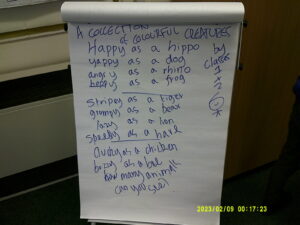 A COLLECTION
of COLOURFUL CREATURES
Happy as a hippo by
yappy as a dog classes
angry as a rhino 1
as a frog 2
Stripey as a tiger
grumpy as a bear
as a lion
as a hare
as a chicken
as a
how many animals
can you see?
2023/02/09 00:17:23